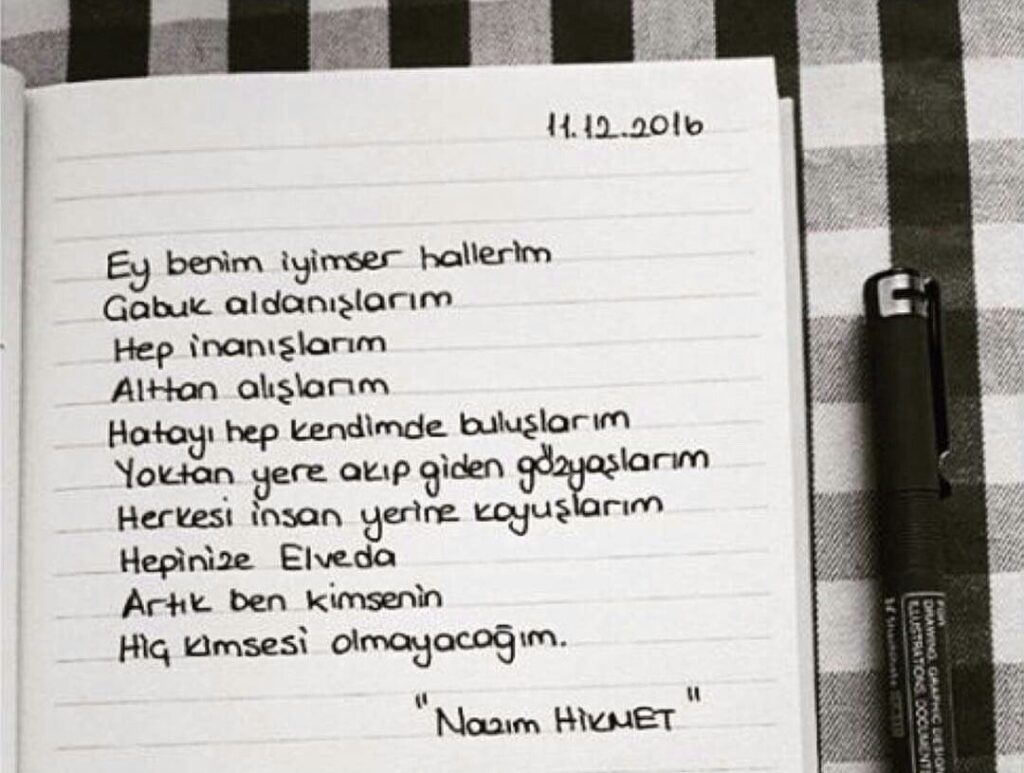 11.12.2016
Ey benim iyimser hallerim
Çabuk aldanışlarım
Hep inanışlarım
Alttan alışlarım
Hatayı hep kendimde buluşlarım
Yoktan yere akıp giden gözyaşlarım
Herkesi insan yerine koyuşlarım
Hepinize Elveda
Artık ben kimsenin
Hiç kimsesi olmayacağım.
"Nazım HİKMET"
DRAWING, GRAPHIC DESIGN
ILLUSTRATIONS, DOCUMENT